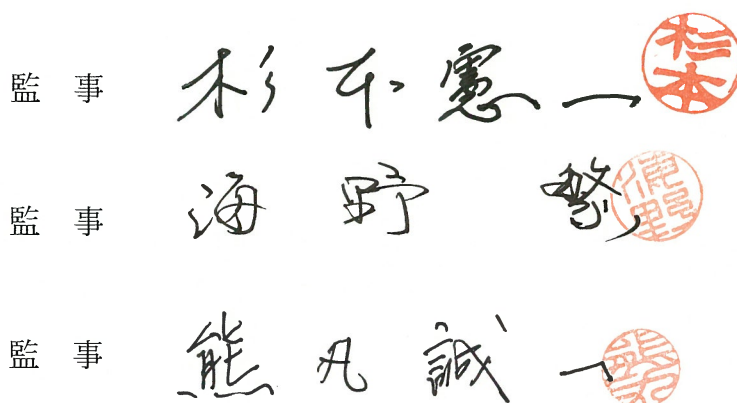 監 事 杉 本 憲 一 杉本
監 事 海 野 繁
監 事 熊 凡 誠 一